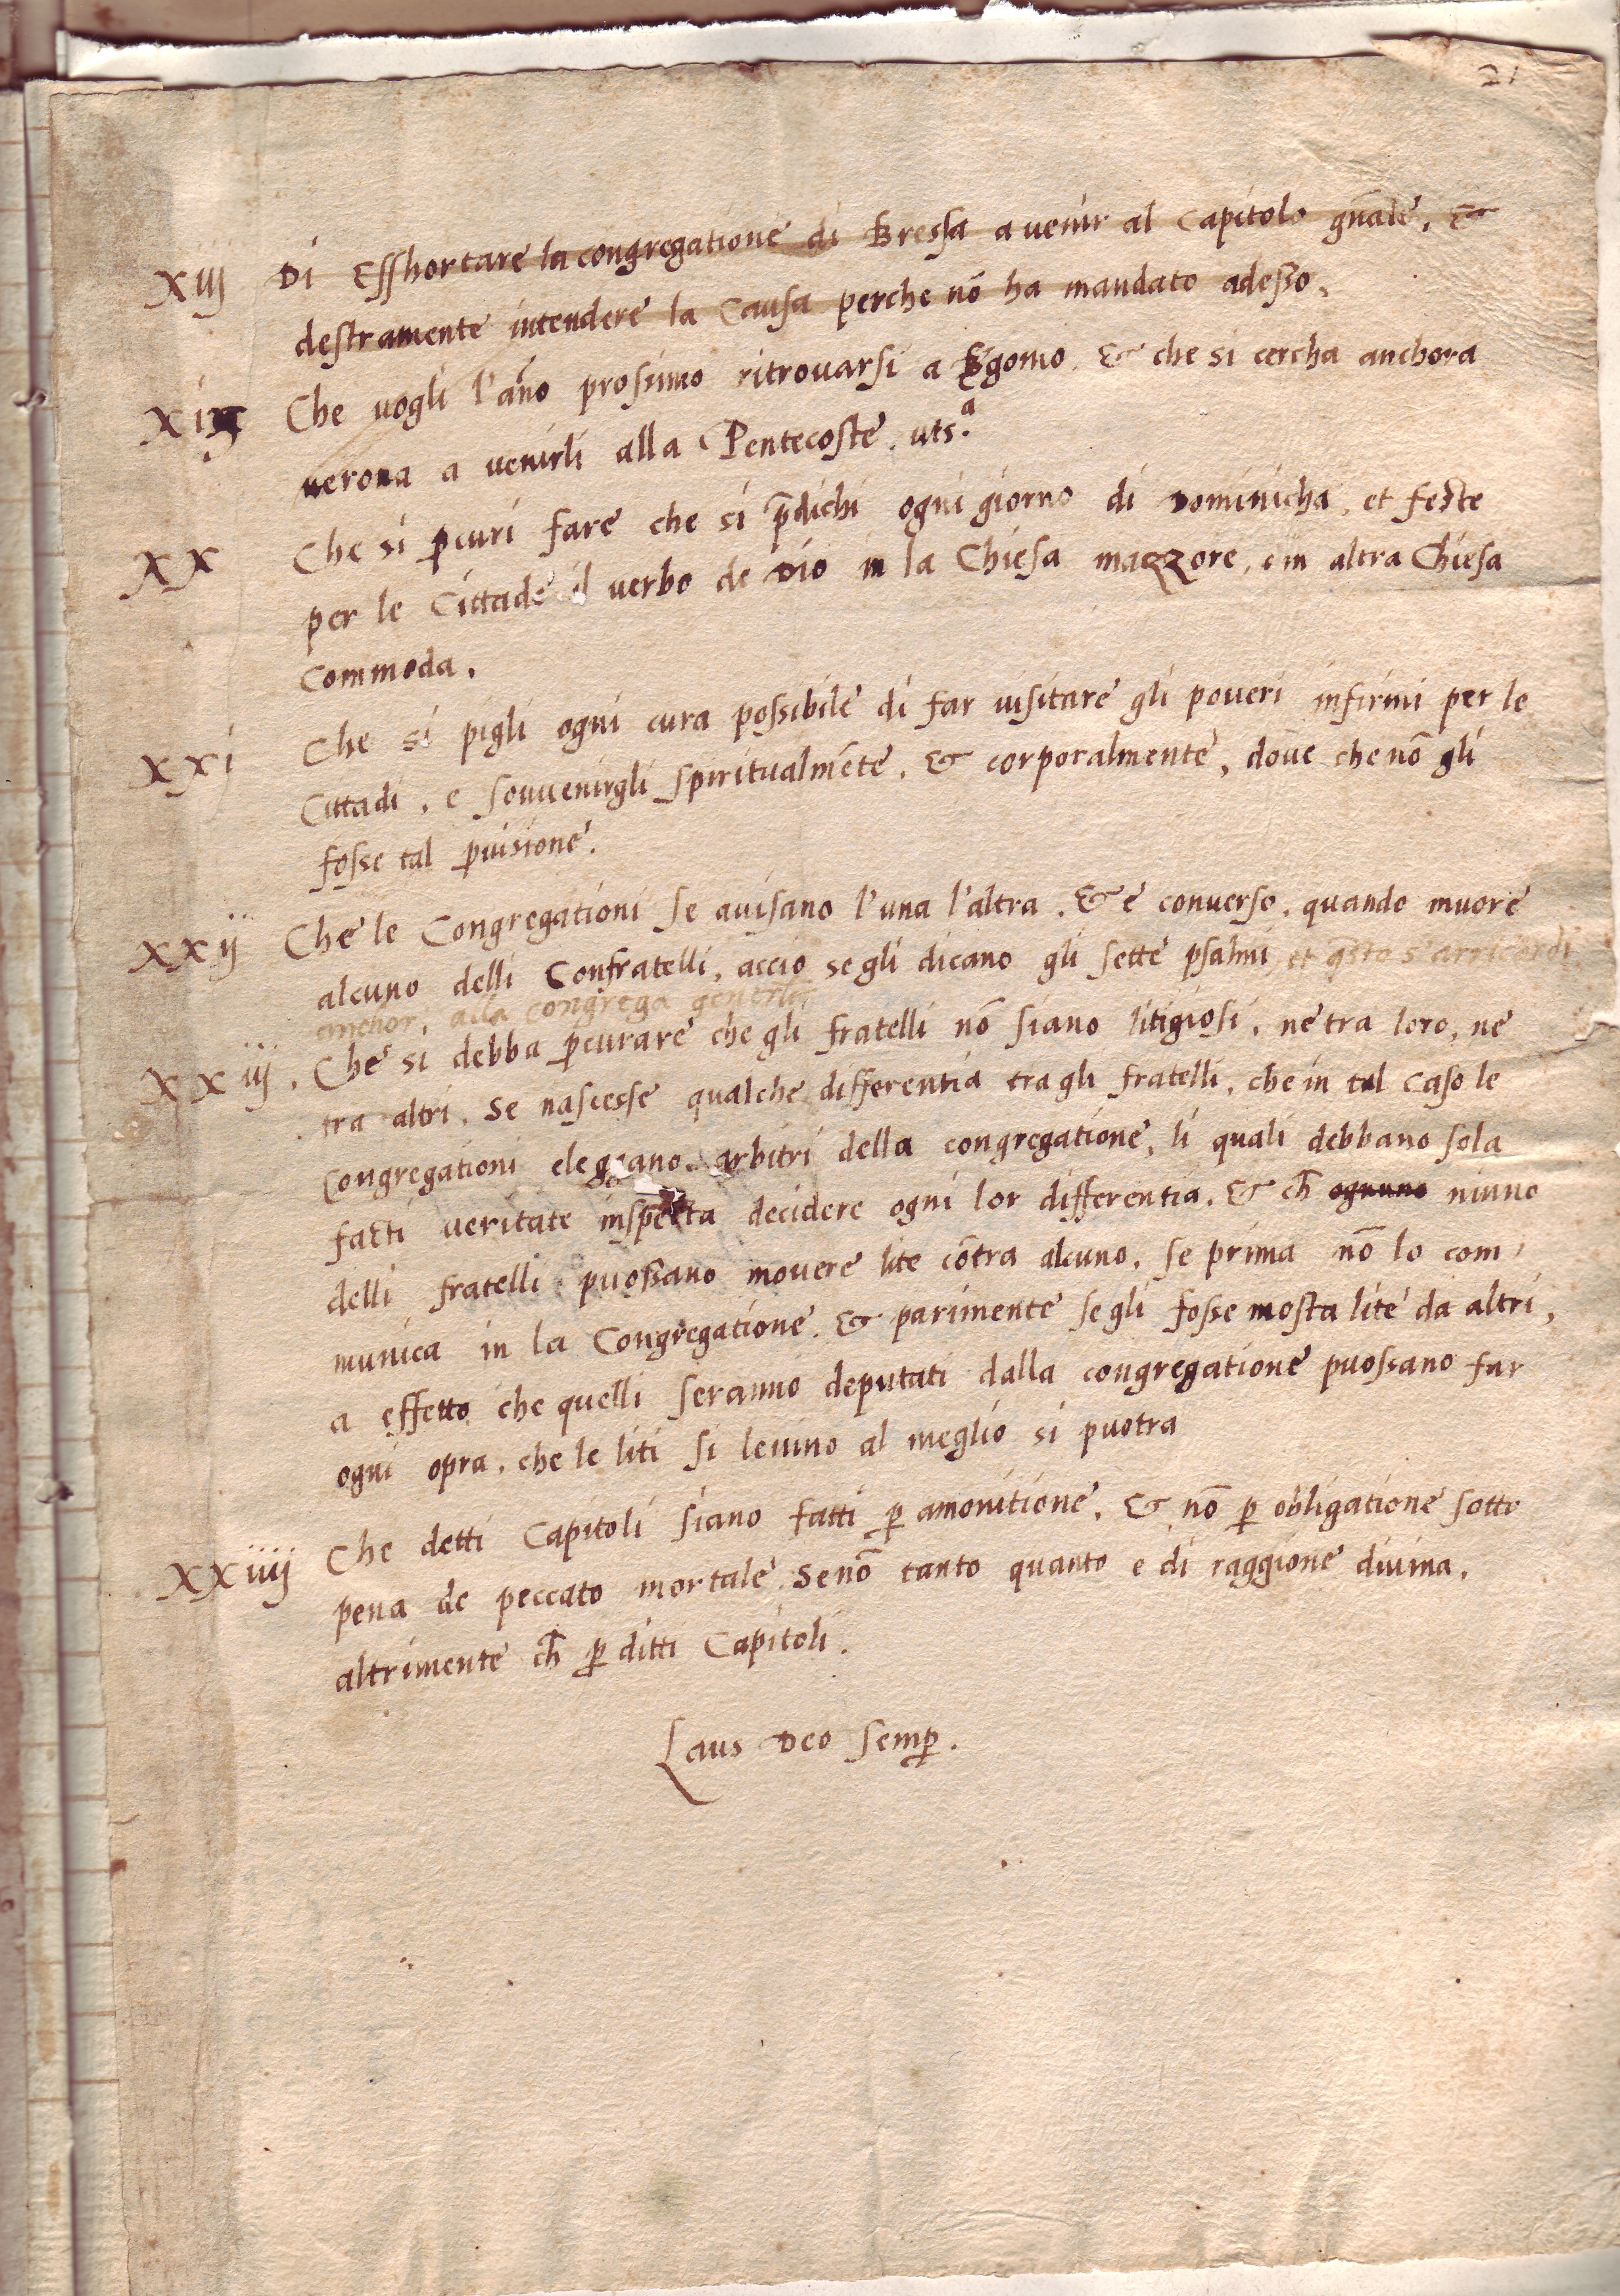 21
xiij Di Esshortare la congregatione di Bressa a venir al Capitolo gn̄ale, &
destramente intendere la Causa perche nō ha mandato adesso.
xix Che vogli l'an̄o prossimo ritrovarsi a Bgomo. & che si cercha anchora
verona a venirli alla Pentecoste. uts.ª
xx Che si ꝓcuri fare che si p̄dichi ogni giorno di Dominicha, et feste
per le Cittade il verbo de Dio in la Chiesa mazzore, e in altra Chiesa
commoda.
xxi Che si pigli ogni cura possibile di far visitare gli poveri infirmi per le
Cittadi, e souvenirgli spiritualmēte, & corporalmente, dove che nō gli
fosse tal ꝓvisione.
xxij Che le Congregationi se avisano l'una l'altra. & e converso, quando muore
alcuno delli Confratelli, accio se gli dicano gli sette psalmi et q̄sto s'arricordi
anchor. alla congrega
xxiij. Che si debba ꝓcurare che gli fratelli nō siano litigiosi, ne tra loro, ne
tra altri. Se nascesse qualche differentia tra gli fratelli, che in tal caso le
Congregationi eleggano arbitri della congregatione, li quali debbano sola
facti veritate inspecta decidere ogni lor differentia. & ch̄ ognuno niuno
delli fratelli puossano movere lite cōtra alcuno, se prima nō lo com
munica in la Congregatione. & parimente se gli fosse mosta lite da altri,
a effetto che quelli seranno deputati dalla congregatione puossano far
ogni opra, che le liti si levino al meglio si puotra
xxiiij Che detti Capitoli siano fatti ꝑ amonitione, & nō ꝑ obligatione sotto
pena de peccato mortale. Se nō tanto quanto e di raggione divina,
altrimente ch̄ ꝑ ditti Capitoli.
Laus Deo semꝑ.